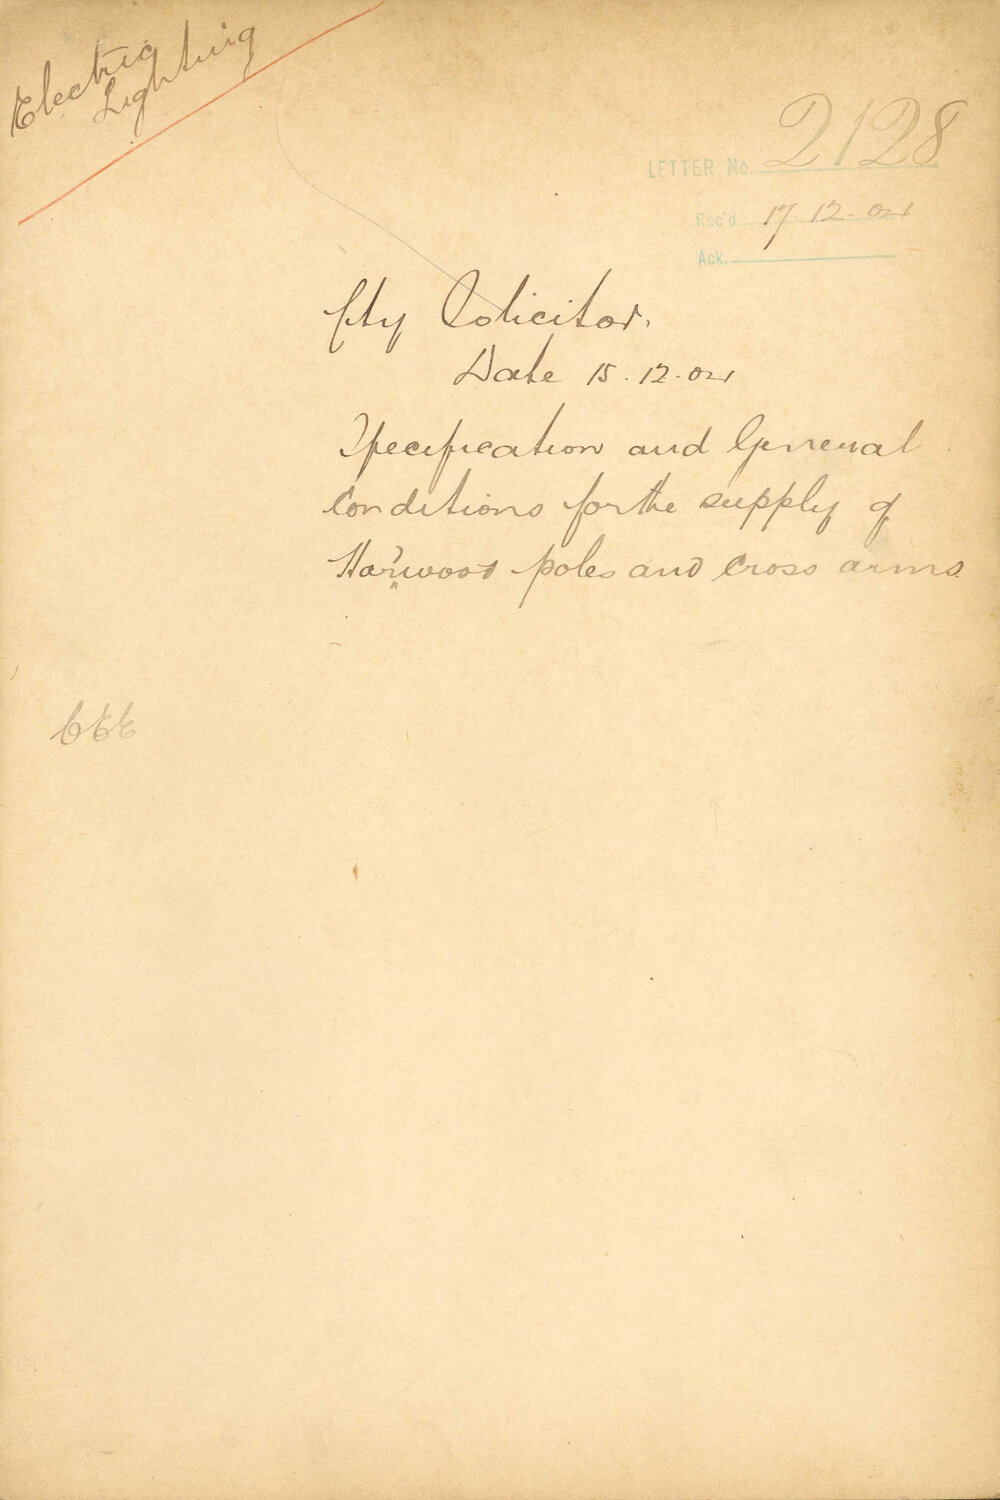 Electric
Lighting
LETTER No. 2128
Rec'd 17.12.04
Ack.
City Solicitor.
Date 15.12.04
Specification and General
Conditions for the supply of
Harwood poles and cross arms